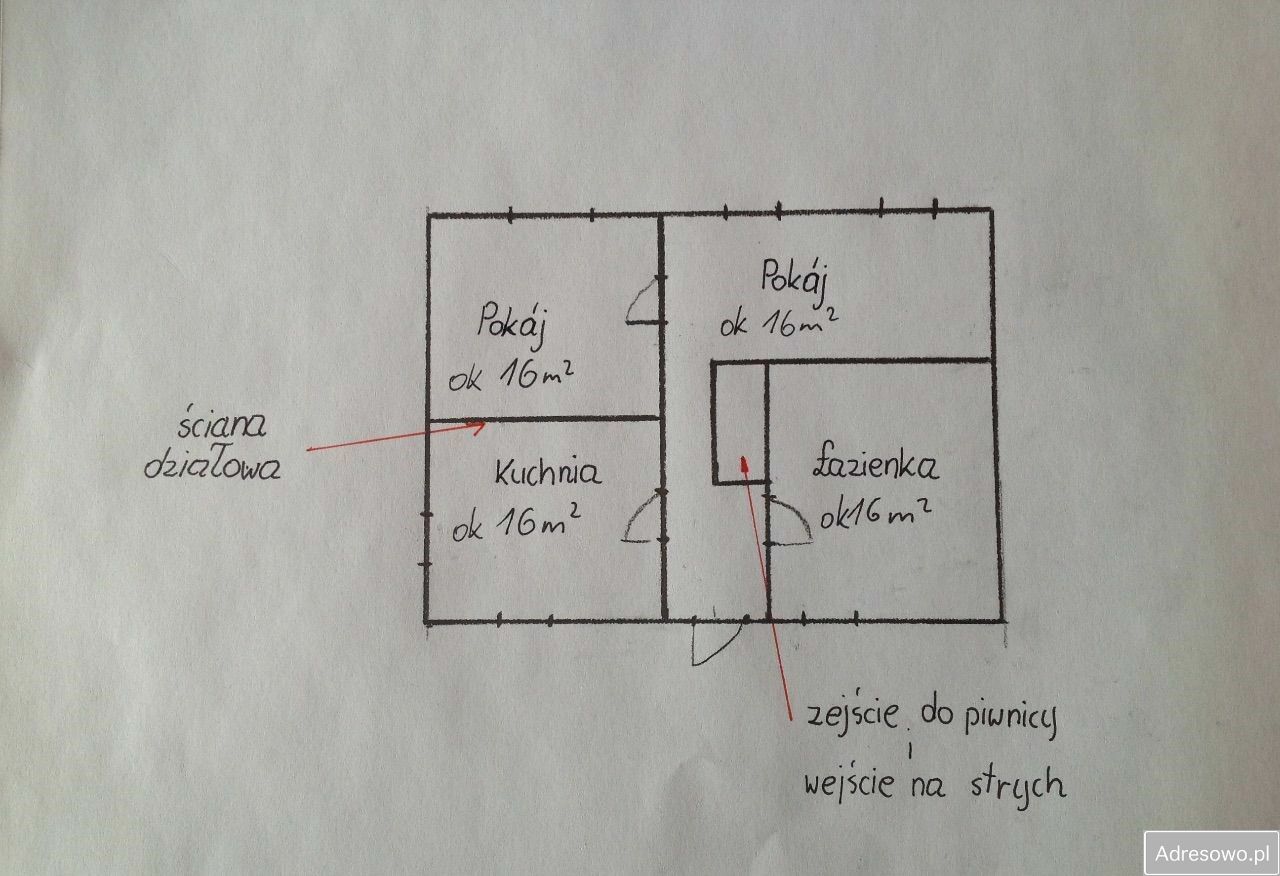 Pokój
ok 16m²
Pokój
ok 16m²
ściana
działowa
Kuchnia
ok 16m²
Łazienka
ok16m²
zejście do piwnicy
i
wejście na strych
Adresowo.pl